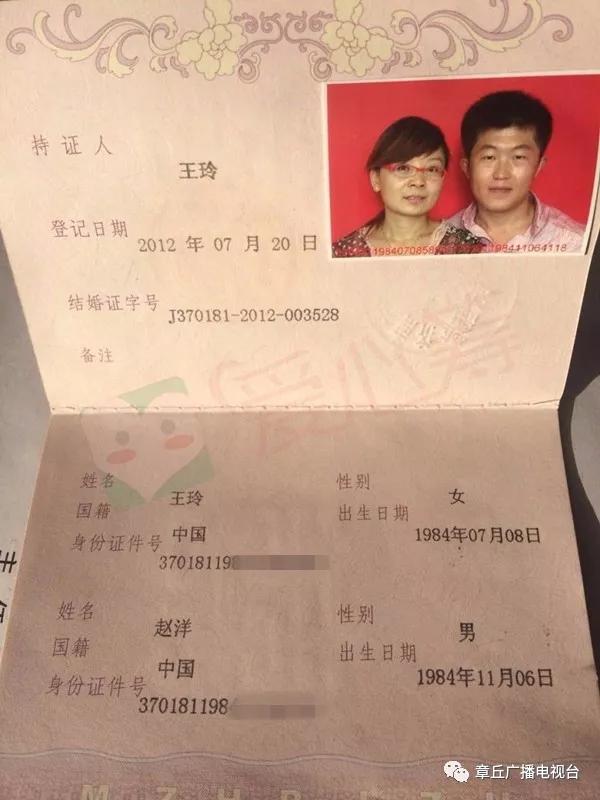 持证人
王玲
登记日期
2012 年 07 月 20 日
结婚证字号
J370181-2012-003528
备注
爱心筹
姓名 王玲 性别 女
国籍 中国 出生日期 1984年07月08日
身份证件号 37018119
姓名 赵洋 性别 男
国籍 中国 出生日期 1984年11月06日
身份证件号 370181198
章丘广播电视台